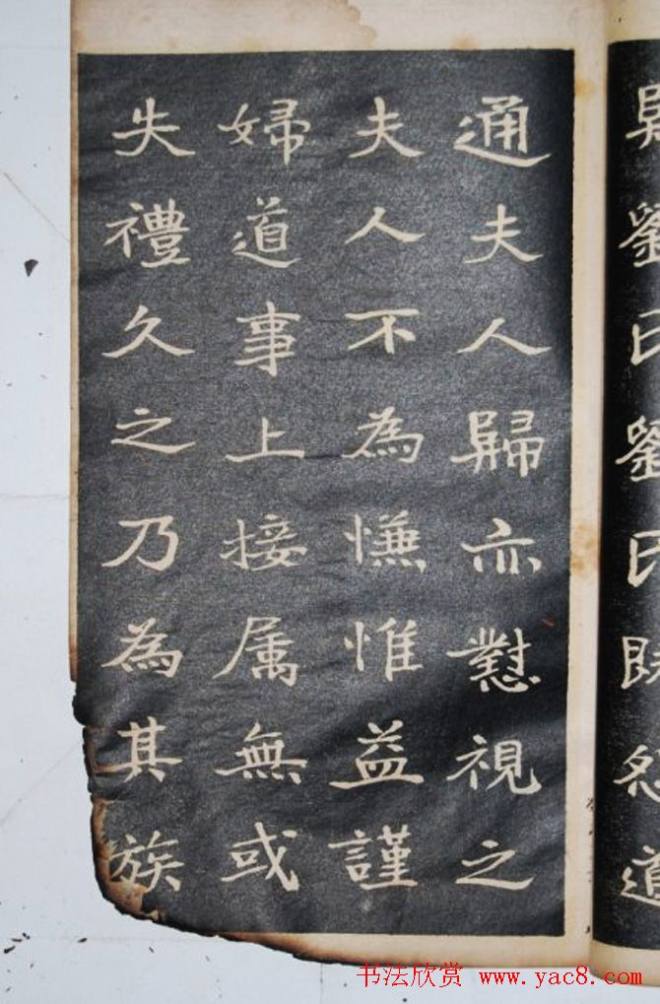 劉氏劉氏
道
通夫人歸亦懟視之
夫人不為慊惟益謹
婦道事上接属無或
失禮久之乃為其族
书法欣赏 www.yac8.com